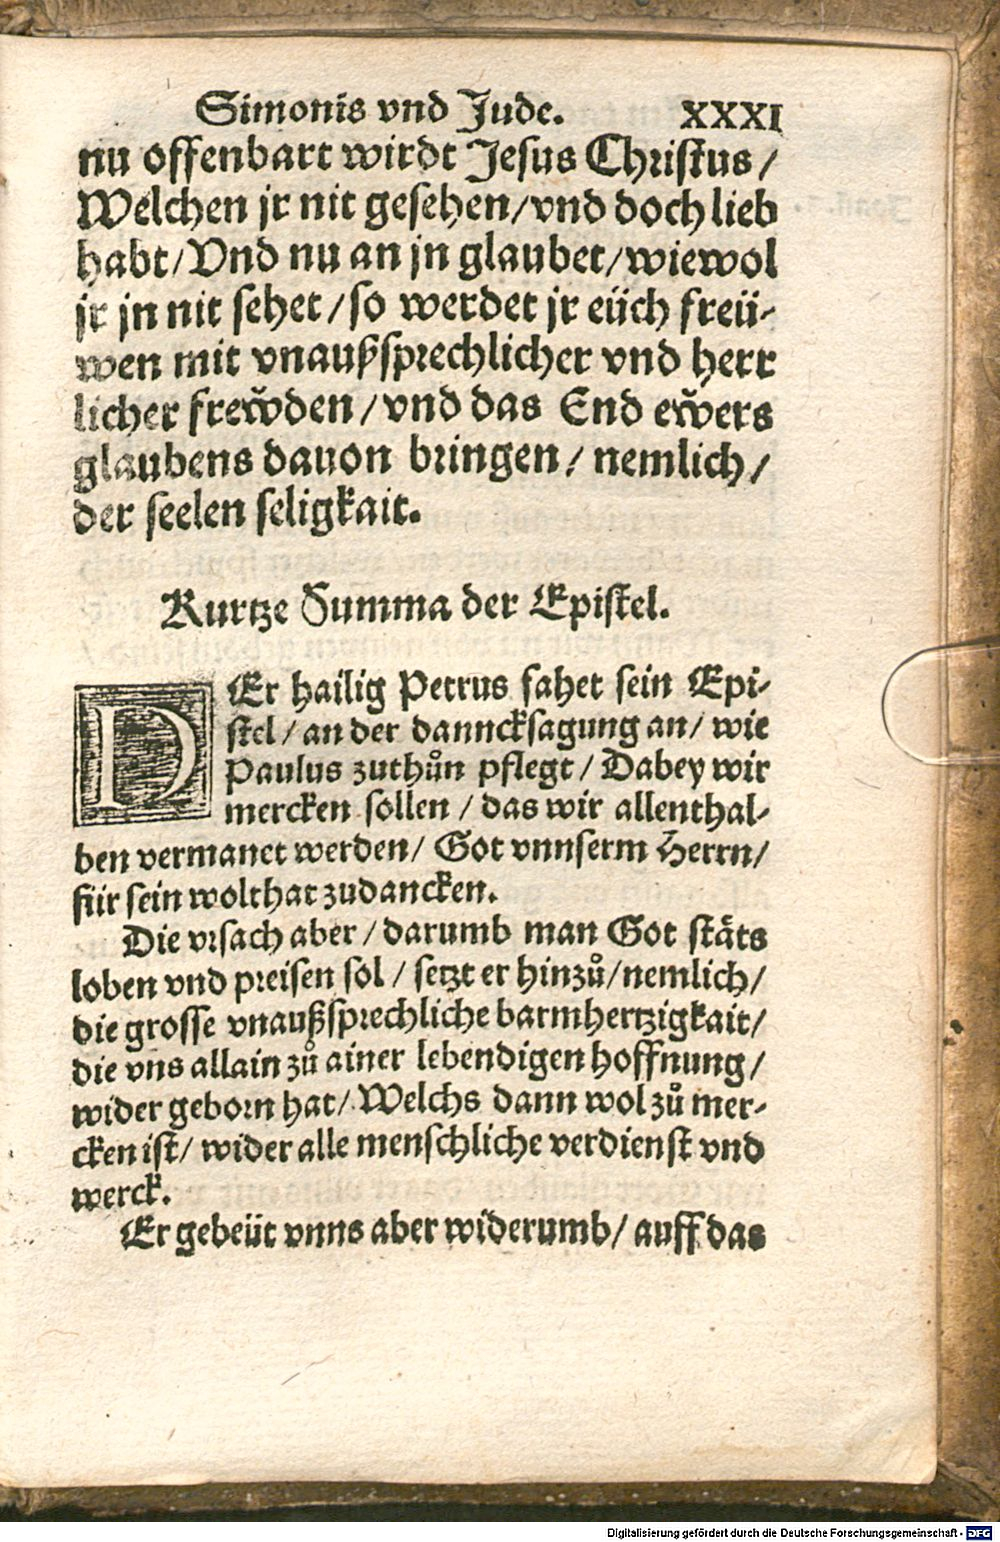 Simonis vnd Jude. XXXI
nu offenbart wirdt Jesus Christus/
Welchen jr nit gesehen/vnd doch lieb
habt/Vnd nu an jn glaubet/wiewol
jr jn nit sehet/so werdet jr eüch freü-
wen mit vnaußsprechlicher vnd herr
licher freẅden/vnd das End eẅers
glaubens dauon bringen/nemlich/
der seelen seligkait.
Kurtze Summa der Epistel.
DEr hailig Petrus fahet sein Epi-
stel/an der dancksagung an/wie
Paulus zuthůn pflegt/Dabey wir
mercken sollen/das wir allenthal-
ben vermanet werden/Got vnnserm Herrn/
für sein wolthat zudancken.
Die vrsach aber/darumb man Got stäts
loben vnd preisen sol/setzt er hinzů/nemlich/
die grosse vnaußsprechliche barmhertzigkait/
die vns allain zů ainer lebendigen hoffnung/
wider geborn hat/Welchs dann wol zů mer-
cken ist/wider alle menschliche verdienst vnd
werck.
Er gebeüt vnns aber widerumb/auff das
Digitalisierung gefördert durch die Deutsche Forschungsgemeinschaft - DFG